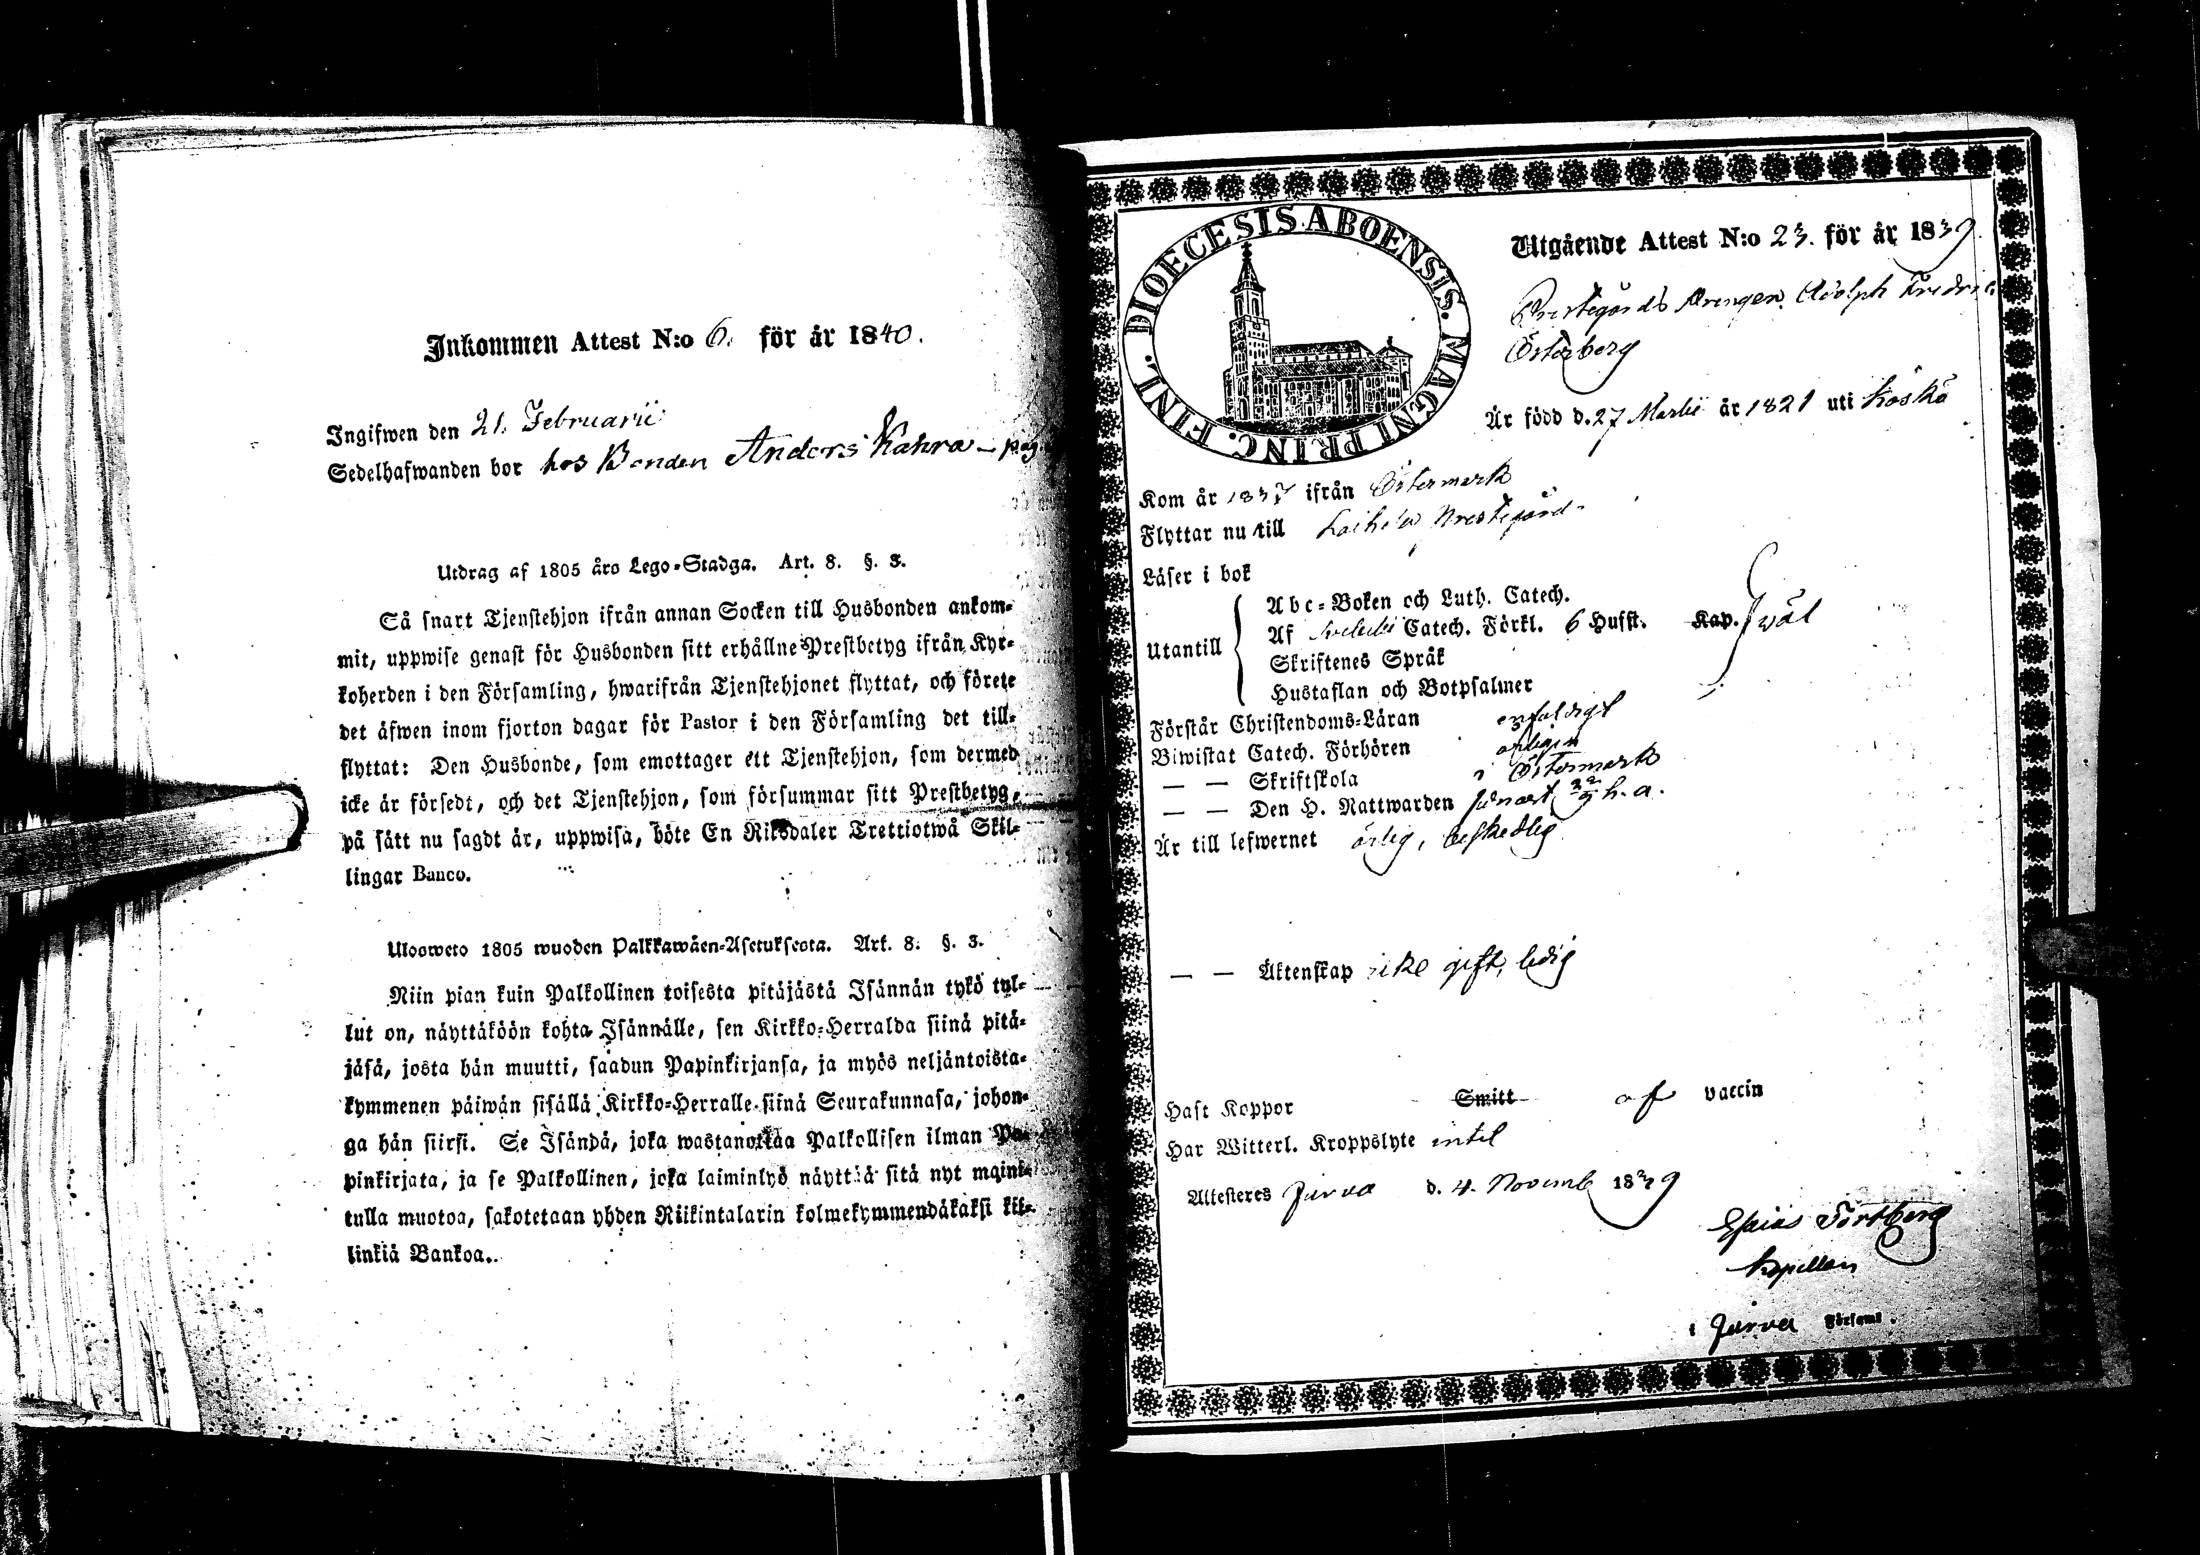 Inkommen Attest N:o 6. för år 1840.
Ingifwen den 21. Februarii
Sedelhafwanden bor hos Bonden Anders Kahra – pag.
Utdrag af 1805 års Lego-Stadga. Art. 8. §. 3.
Så snart Tjenstehjon ifrån annan Socken till Husbonden ankom-
mit, uppwise genast för Husbonden sitt erhållne Prestbetyg ifrån Kyr-
koherden i den Församling, hwarifrån Tjenstehjonet flyttat, och förete
det äfwen inom fjorton dagar för Pastor i den Församling det till-
flyttat: Den Husbonde, som emottager ett Tjenstehjon, som dermed
icke är försedt, och det Tjenstehjon, som försummar sitt Prestbetyg,
på sätt nu sagdt är, uppwisa, böte En Riksdaler Trettiotwå Skil-
lingar Banco.
Ulosweto 1805 wuoden Palkkawäen-Asetuksesta. Art. 8. §. 3.
Niin pian kuin Palkollinen toisesta pitäjästä Isännän tykö tul-
lut on, näyttäköön kohta Isännälle, sen Kirkko-Herralda siinä pitä-
jäsä, josta hän muutti, saadun Papinkirjansa, ja myös neljäntoista-
kymmenen päiwän sisällä Kirkko-Herralle siinä Seurakunnasa, johon-
ga hän siirsi. Se Isändä, joka wastanottaa Palkollisen ilman Pa-
pinkirjata, ja se Palkollinen, joka laiminlyö näyttää sitä nyt mainit-
tulla muotoa, sakotetaan yhden Riikintalarin kolmekymmendäkaksi kil-
linkiä Bankoa.
DIOECESIS ABOENSIS. MAGNI PRINC. FINL.
Utgående Attest N:o 23. för år 1839
Prestegårds Drengen Adolph Fredric
Österberg
Är född d. 27 Martii år 1821 uti Koskö
Kom år 1837 ifrån Östermark
Flyttar nu till Laihela Prestegård
Läser i bok
Utantill
Abc-Boken och Luth. Catech.
Af Svebelii Catech. Förkl. 6 Hufst. Kap. wäl
Skriftenes Språk
Hustaflan och Botpsalmer
Förstår Christendoms-Läran enfaldigt
Biwistat Catech. Förhören årligen
— — Skriftskola i Östermark
— — Den H. Nattwarden h. a.
Är till lefwernet ärlig, beskedlig
— — Äktenskap icke gift, ledig
Haft Koppor Smitt af vaccin
Har Witterl. Kroppslyte intet
Attesteres Jurva d. 4. Novemb 1839
Esaias Törtberg
Kapellan
i Jurva Församl.